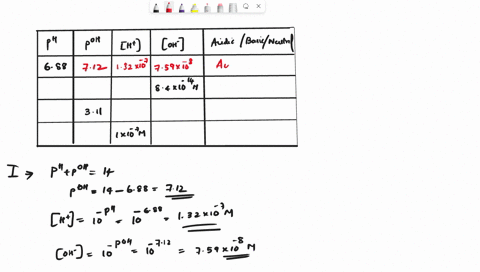 pH pOH [H+] [OH-] Acidic / Basic / Neutral
6.88 7.12 1.32×10⁻⁷ 7.59×10⁻⁸ Ac
8.4×10⁻¹⁴M
3.11
1×10⁻⁷M
I → pH + pOH = 14
pOH = 14 - 6.88 = 7.12
[H+] = 10^-pH = 10^-6.88 = 1.32×10⁻⁷ M
[OH-] = 10^-pOH = 10^-7.12 = 7.59×10⁻⁸ M